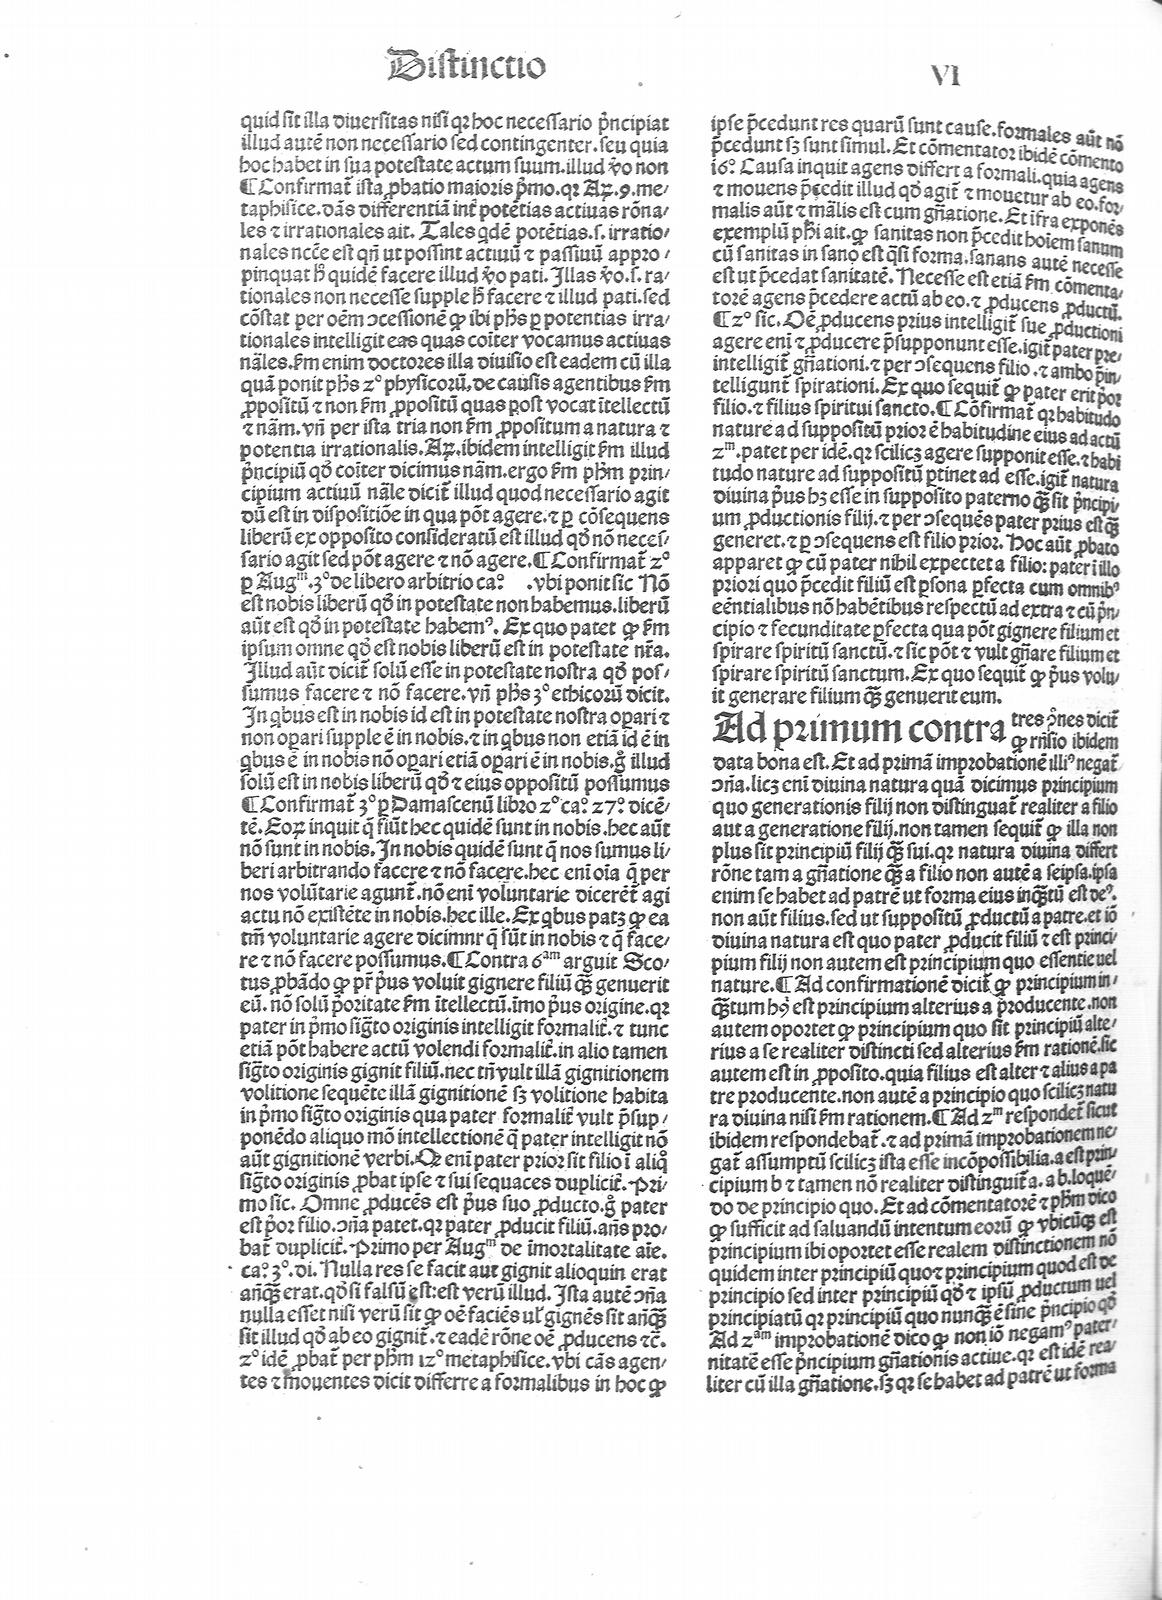 Distinctio
VI
quid sit illa diuersitas nisi qꝛ hoc necessario p̄ncipiat
illud autē non necessario sed contingenter. seu quia
hoc habet in sua potestate actum suum. illud v̊o non
¶ Confirmat᷑ ista ꝓbatio maioris p̄mo. qꝛ Aꝝ. 9. me/
taphisice. dās differentiā int᷑ potētias actiuas rōna/
les ⁊ irrationales ait. Tales qdē potētias. s. irratio/
nales necc̄e est qn̄ ut possint actiuū ⁊ passiuū appro/
pinquat h̄ quidē facere illud v̊o pati. Illas v̊o. s. ra/
tionales non necesse supple h̄ facere ⁊ illud pati. sed
cōstat per oēm ↄcessionē ꝙ ibi ph̄s ꝑ potentias irra/
tionales intelligit eas quas coīter vocamus actiuas
nāles. fm̄ enim doctores illa diuisio est eadem cū illa
quā ponit ph̄s 2° physicorū. de causis agentibus fm̄
ꝓpositū ⁊ non fm̄ ꝓpositū quas post vocat ītellectū
⁊ nām. vn̄ per ista tria non fm̄ ꝓpositum a natura ⁊
potentia irrationalis. Aꝝ. ibidem intelligit fm̄ illud
p̄ncipiū qd̄ coīter dicimus nām. ergo fm̄ ph̄m prin/
cipium actiuū nāle dicit᷑ illud quod necessario agit
dū est in dispositiōe in qua pōt agere. ⁊ ꝑ cōsequens
liberū ex opposito consideratū est illud qd̄ nō neces/
sario agit sed pōt agere ⁊ nō agere. ¶ Confirmat᷑ 2°
ꝑ Augᵐ. 3° de libero arbitrio ca° . vbi ponit sic Nō
est nobis liberū qd̄ in potestate non habemus. liberū
aūt est qd̄ in potestate habemꝰ. Ex quo patet ꝙ fm̄
ipsum omne qd̄ est nobis liberū est in potestate nr̄a.
Illud aūt dicit᷑ solū esse in potestate nostra qd̄ pos/
sumus facere ⁊ nō facere. vn̄ ph̄s 3° ethicorū dicit.
In qbus est in nobis id est in potestate nostra opari ⁊
non opari supple ē in nobis. ⁊ in qbus non etiā id ē in
qbus ē in nobis nō opari etiā opari ē in nobis. g̊ illud
solū est in nobis liberū qd̄ ⁊ eius oppositū possumus
¶ Confirmat᷑ 3° ꝑ Damascenū libro 2° ca° 27° dicē/
tē. Eoꝝ inquit q̄ fiūt hec quidē sunt in nobis. hec aūt
nō sunt in nobis. In nobis quidē sunt q̄ nos sumus li/
beri arbitrando facere ⁊ nō facere. hec eni oīa q̄ per
nos volūtarie agunt᷑. nō enī voluntarie diceret᷑ agi
actu nō existēte in nobis. hec ille. Ex qbus patꝫ ꝙ ea
tm̄ voluntarie agere dicimnr q̄ sūt in nobis ⁊ q̄ face/
re ⁊ nō facere possumus. ¶ Contra 6ᵃᵐ arguit Sco/
tus ꝓbādo ꝙ pr̄ p̄us voluit gignere filiū qꝫ̄ genuerit
eū. nō solū p̄oritate fm̄ ītellectū. imo p̄us origine. qꝛ
pater in p̄mo sig̊to originis intelligit formalit᷑. ⁊ tunc
etiā pōt habere actū volendi formalit᷑. in alio tamen
sig̊to originis gignit filiū. nec tn̄ vult illā gignitionem
volitione sequēte illā gignitionē sꝫ volitione habita
in p̄mo sig̊to originis qua pater formalit᷑ vult p̄sup/
ponēdo aliquo mō intellectionē q̄ pater intelligit nō
aūt gignitionē verbi. Qꝛ enī pater prior sit filio ī aliq̊
sig̊to originis ꝓbat ipse ⁊ sui sequaces duplicit᷑. Pri/
mo sic. Omne ꝓducēs est p̄us suo ꝓducto. g̊ pater
est p̄or filio. ↄn̄a patet. qꝛ pater ꝓducit filiū. an̄s pro/
bat᷑ duplicit᷑. Primo per Augᵐ de īmortalitate aīe.
ca° 3°. di. Nulla res se facit aut gignit alioquin erat
anꝗ̄ erat. qd̄ si falsū est: est verū illud. Ista autē ↄn̄a
nulla esset nisi verū sit ꝙ oē faciēs ul᷑ gignēs sit anꝗ̄
sit illud qd̄ ab eo gignit᷑. ⁊ eadē rōne oē ꝓducens ⁊c̄.
2° idē ꝓbat᷑ per ph̄m 12° metaphisice. vbi cās agen/
tes ⁊ mouentes dicit differre a formalibus in hoc ꝙ
ipse p̄cedunt res quarū sunt cause. formales aūt nō
p̄cedunt sꝫ sunt simul. Et cōmentator ibidē cōmento
16° Causa inquit agens differt a formali. quia agens
⁊ mouens p̄cedit illud qd̄ agit᷑ ⁊ mouetur ab eo. for/
malis aūt ⁊ mālis est cum gn̄atione. Et ifra exponēs
exemplū ph̄i ait. ꝙ sanitas non p̄cedit hoīem sanum
cū sanitas in sano est q̄si forma. sanans autē necesse
est ut p̄cedat sanitatē. Necesse est etiā fm̄ cōmenta/
torē agens p̄cedere actū ab eo. ⁊ ꝓducens ꝓductū.
¶ 2° sic. Oē ꝓducens prius intelligit᷑ sue ꝓductioni
agere enī ⁊ ꝓducere p̄supponunt esse. igit᷑ pater pre/
intelligit᷑ gn̄ationi. ⁊ per ↄsequens filio. ⁊ ambo p̄in/
telligunt᷑ spirationi. Ex quo sequit᷑ ꝙ pater erit p̄or
filio. ⁊ filius spiritui sancto. ¶ Cōfirmat᷑ qꝛ habitudo
nature ad suppositū prior ē habitudine eius ad actū
2ᵐ. patet per idē. qꝛ scilicꝫ agere supponit esse. ⁊ habi
tudo nature ad suppositū ꝑtinet ad esse. igit᷑ natura
diuina p̄us hꝫ esse in supposito paterno qꝫ̄ sit p̄ncipi/
um ꝓductionis filij. ⁊ per ↄsequēs pater prius est qꝫ̄
generet. ⁊ ꝑ ↄsequens est filio prior. Hoc aūt ꝓbato
apparet ꝙ cū pater nihil expectet a filio: pater ī illo
priori quo p̄cedit filiū est ꝑsona ꝑfecta cum omnibꝰ
eēntialibus nō habētibus respectū ad extra ⁊ cū p̄n/
cipio ⁊ fecunditate ꝑfecta qua pōt gignere filium et
spirare spiritū sanctū. ⁊ sic pōt ⁊ vult gn̄are filium et
spirare spiritū sanctum. Ex quo sequit᷑ ꝙ p̄us volu/
it generare filium qꝫ̄ genuerit eum.
Ad primum contra tres ↄ̄nes dicit᷑
ꝙ rn̄sio ibidem
data bona est. Et ad primā improbationē illiꝰ negat᷑
ↄn̄a. licꝫ enī diuina natura quā dicimus principium
quo generationis filij non distinguat᷑ realiter a filio
aut a generatione filij. non tamen sequit᷑ ꝙ illa non
plus sit principiū filij qꝫ̄ sui. qꝛ natura diuina differt
rōne tam a gn̄atione qꝫ̄ a filio non autē a seipsa. ipsa
enim se habet ad patrē ut forma eius inqꝫ̄tū est deꝰ.
non aūt filius. sed ut suppositū ꝓductū a patre. et iō
diuina natura est quo pater ꝓducit filiū ⁊ est princi/
pium filij non autem est principium quo essentie uel
nature. ¶ Ad confirmationē dicit᷑ ꝙ principium in/
qꝫ̄tum hꝰ est principium alterius a p̄roducente. non
autem oportet ꝙ principium quo sit principiū alte/
rius a se realiter distincti sed alterius fm̄ rationē. sic
autem est in ꝓposito. quia filius est alter ⁊ alius a pa
tre producente. non autē a principio quo scilicꝫ natu
ra diuina nisi fm̄ rationem. ¶ Ad 2ᵐ respondet᷑ sicut
ibidem respondebat᷑. ⁊ ad primā improbationem ne/
gat᷑ assumptū scilicꝫ ista esse incōpossibilia. a est prin/
cipium b ⁊ tamen nō realiter distinguit᷑ a. a b. loquē/
do de principio quo. Et ad cōmentatorē ⁊ ph̄m dico
ꝙ sufficit ad saluandū intentum eorū ꝙ vbicūqꝫ est
principium ibi oportet esse realem distinctionem nō
quidem inter principiū quo ⁊ principium quod est de
principio sed inter principiū qd̄ ⁊ ipsū ꝓductum uel
principiatū qꝛ principiū quo nunqꝫ̄ ē sine p̄ncipio qd̄
Ad 2ᵃᵐ improbationē dico ꝙ non iō negamꝰ pater/
nitatē esse p̄ncipium gn̄ationis actiue. qꝛ est idē rea/
liter cū illa gn̄atione. sꝫ qꝛ se habet ad patrē ut forma